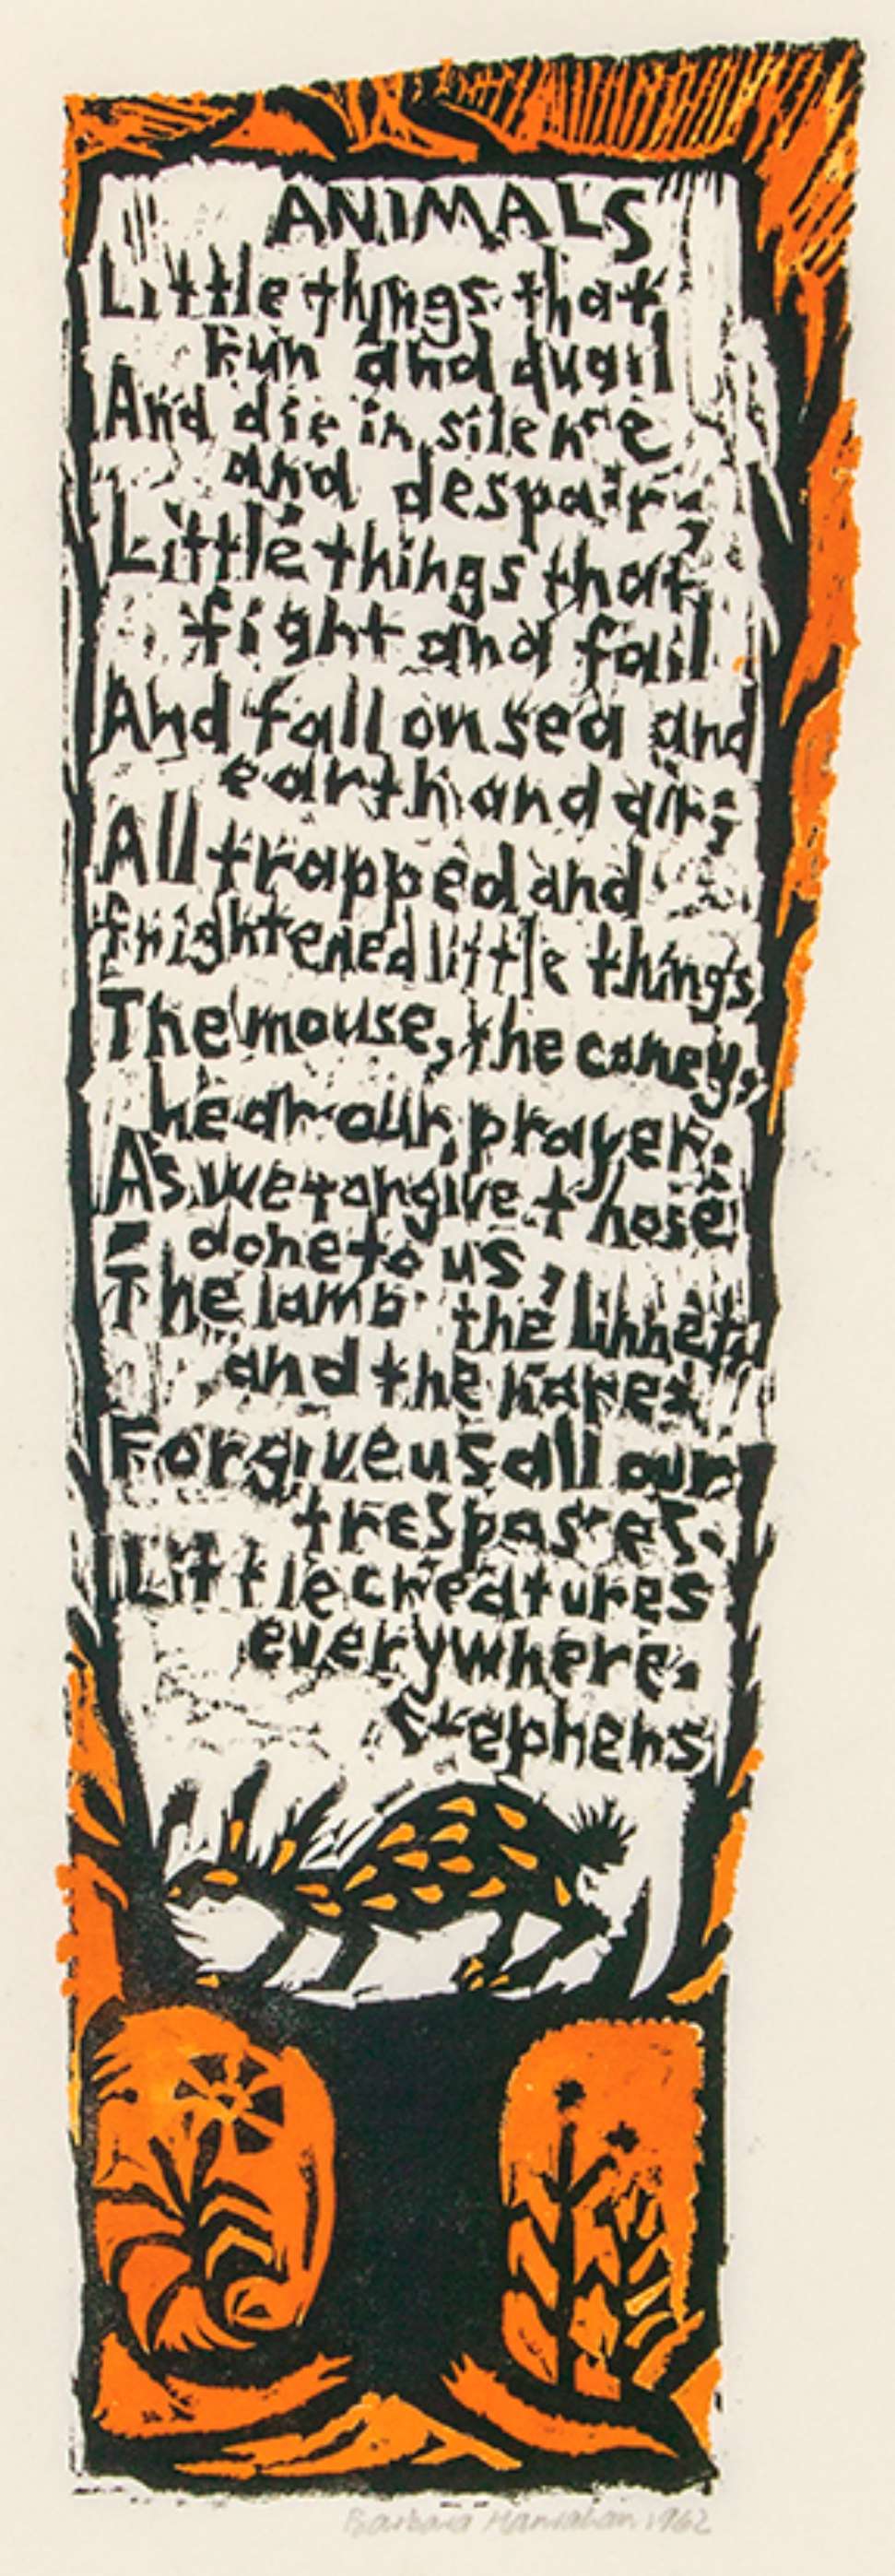 ANIMALS
Little things that
run and quail
And die in silence
and despair;
Little things that
fight and fail
And fall on sea and
earth and air;
All trapped and
frightened little things
The mouse, the coney,
hear our prayer.
As we forgive those
done to us,
The lamb the linnet
and the hare
Forgive us all our
trespasses.
Little creatures
everywhere.
Stephens
Barbara Hanrahan 1962